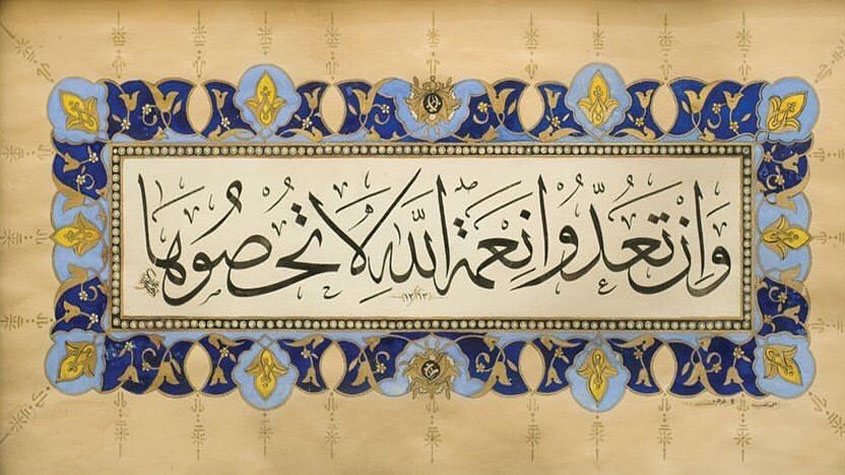 وَاِنْ تَعُدُّوا نِعْمَةَ اللّٰهِ لَا تُحْصُوهَا